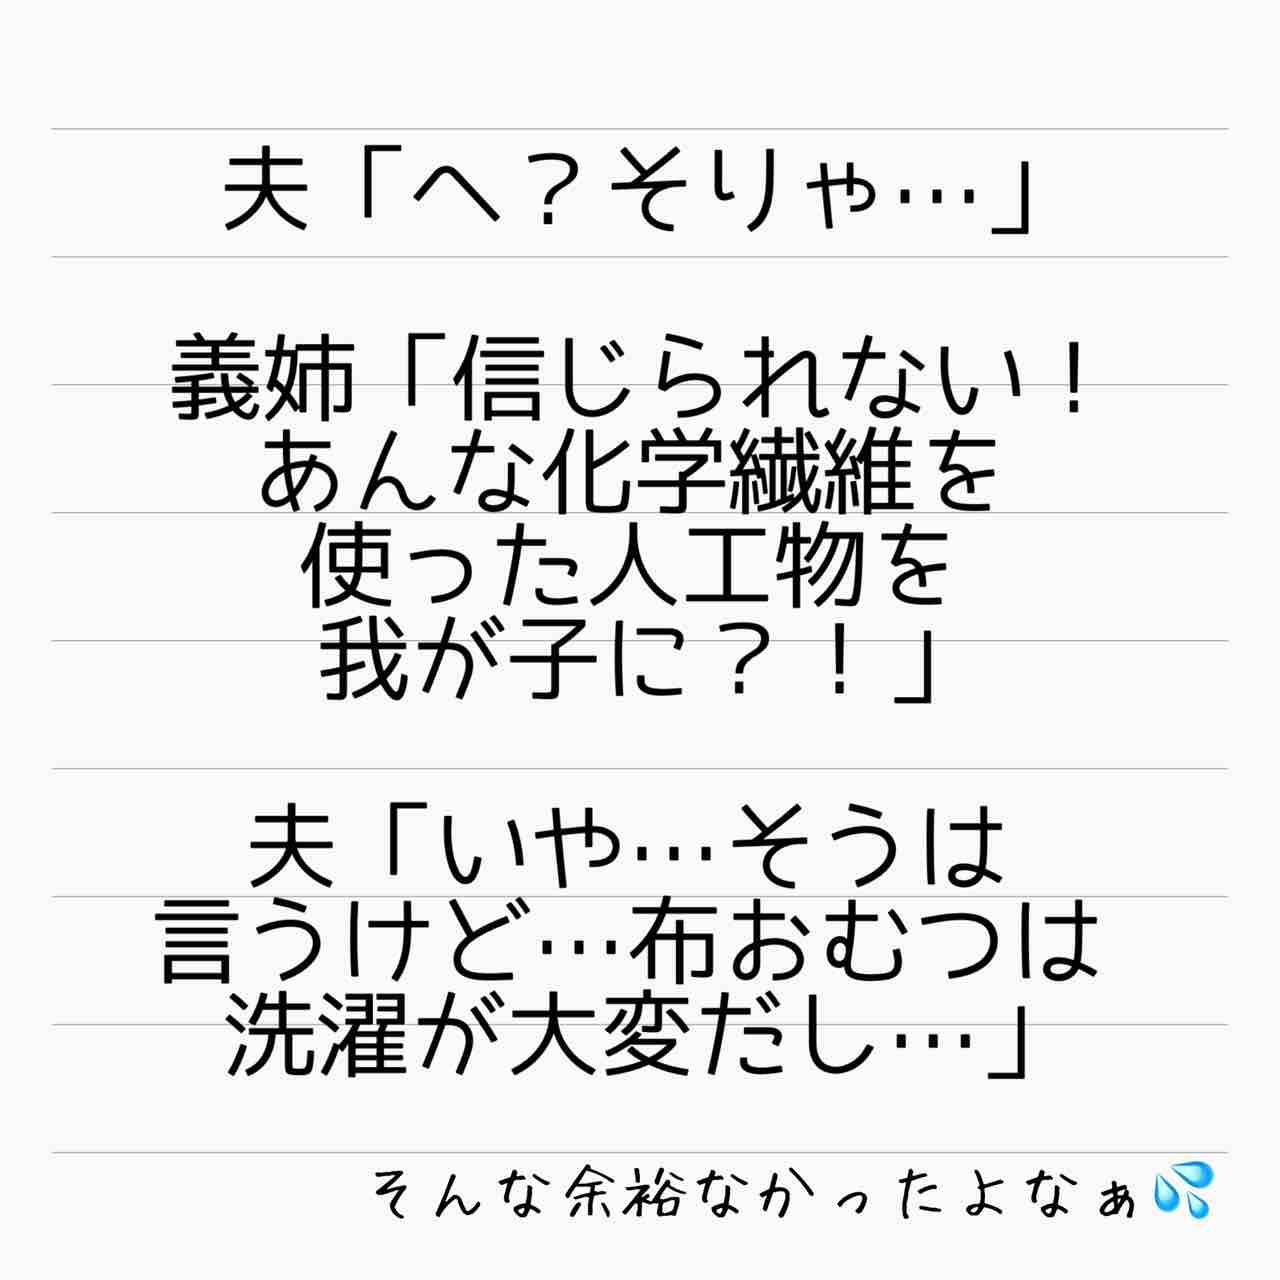 夫「へ？そりゃ…」
義姉「信じられない！
あんな化学繊維を
使った人工物を
我が子に？！」
夫「いや…そうは
言うけど…布おむつは
洗濯が大変だし…」
そんな余裕なかったよなぁ💦